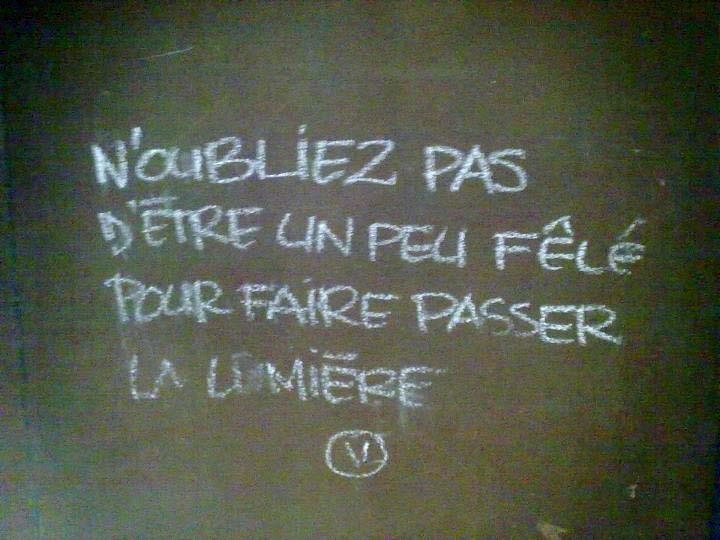 N'OUBLIEZ PAS
D'ÊTRE UN PEU FÊLÉ
POUR FAIRE PASSER
LA LUMIÈRE